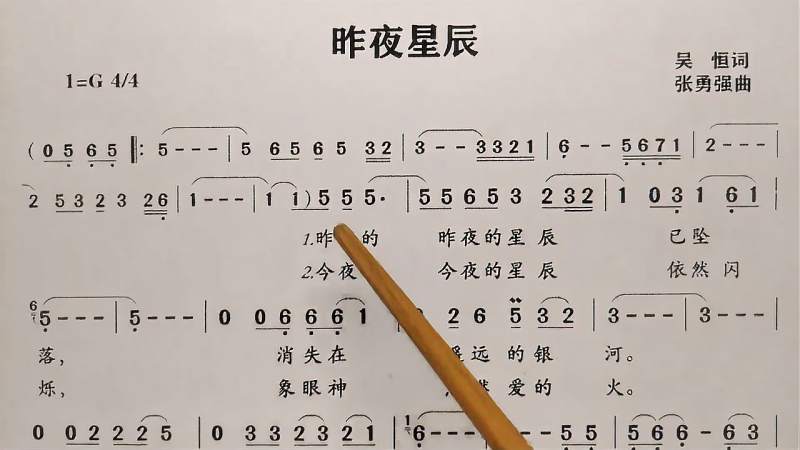 昨夜星辰
吴 恒词
1=G 4/4
张勇强曲
( 0 5 6 5 ‖: 5 - - - | 5 6 5 6 5 3 2 | 3 - - 3 3 2 1 | 6 - - 5 6 7 1 | 2 - - - |
2 5 3 2 3 2 6 | 1 - - - | 1 1 ) 5 5 5· | 5 5 6 5 3 2 3 2 | 1 0 3 1 6 1 |
1.昨 的 昨夜的星 辰 已坠
2.今夜 今夜的星 辰 依然闪
6 5 - - - | 5 - - - | 0 0 6 6 6 1 | 2 6 5 3 2 | 3 - - - | 3 - - - |
落, 消失在 遥远的银 河。
烁, 象眼神 爱的 火。
0 0 2 2 2 5 | 0 3 3 2 3 2 1 | 1 6 - - - | 5 5 | 5 6 6 - 6 3 |